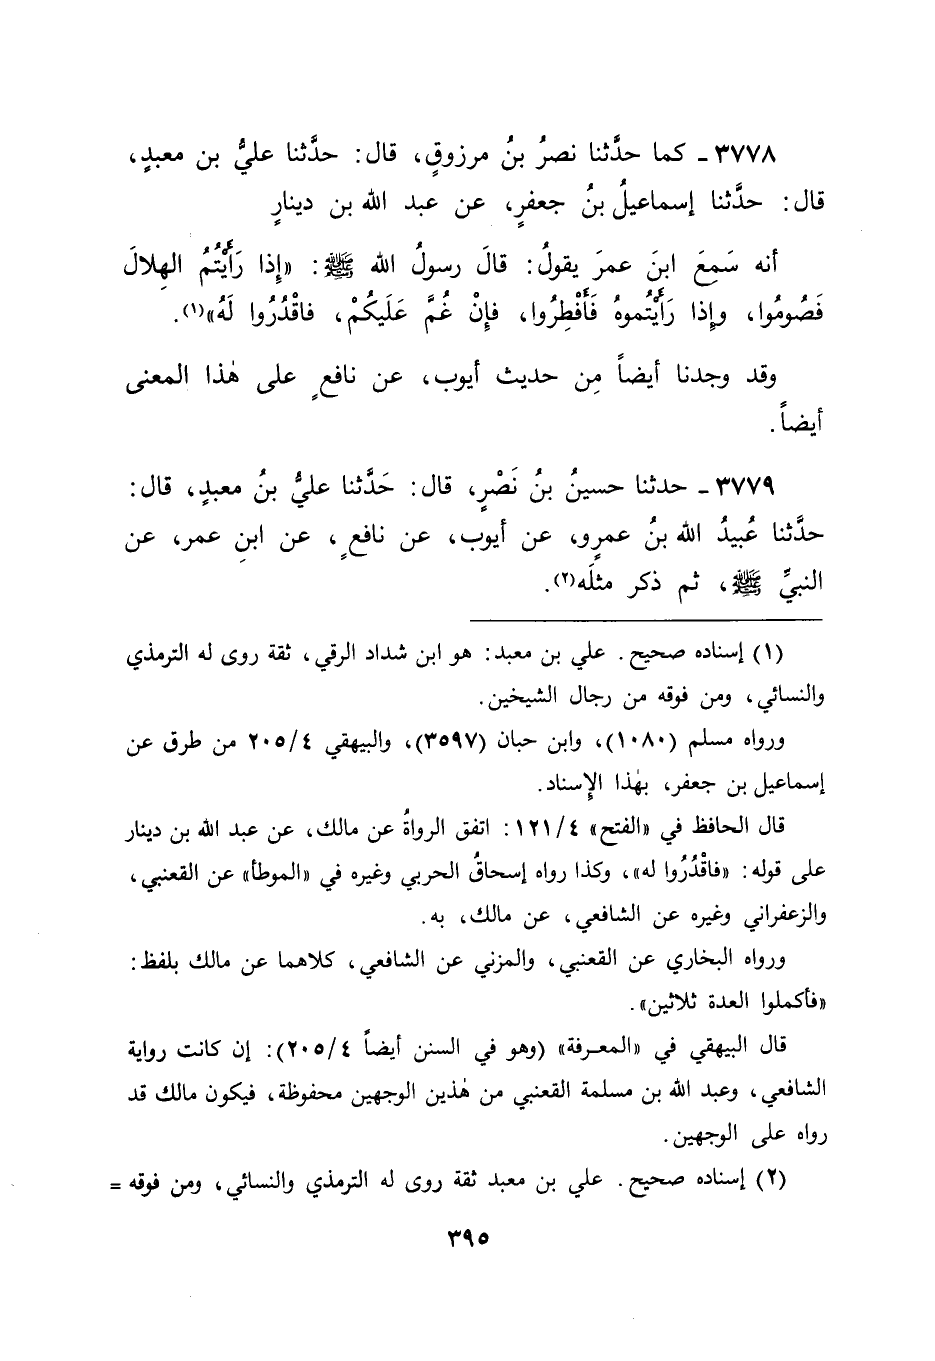 ٣٧٧٨ ـ كما حدَّثنا نصرُ بنُ مرزوقٍ، قال: حدَّثنا عليُّ بن معبدٍ،
قال: حدَّثنا إسماعيلُ بنُ جعفرٍ، عن عبد الله بن دينارٍ
أنه سَمِعَ ابنَ عمرَ يقولُ: قالَ رسولُ الله ﷺ: «إِذا رَأَيْتُمُ الهِلالَ
فَصُومُوا، وإِذا رَأَيْتُموهُ فَأَفْطِرُوا، فإِنْ غُمَّ عَلَيكُمْ، فاقْدُرُوا لَهُ»(١).
وقد وجدنا أيضاً مِن حديث أيوب، عن نافعٍ على هٰذا المعنى
أيضاً.
٣٧٧٩ ـ حدثنا حسينُ بنُ نَصْرٍ، قال: حَدَّثنا عليُّ بنُ معبدٍ، قال:
حدَّثنا عُبيدُ الله بنُ عمرٍو، عن أيوب، عن نافعٍ، عن ابنِ عمر، عن
النبيِّ ﷺ، ثم ذكر مثلَه(٢).
(١) إسناده صحيح. علي بن معبد: هو ابن شداد الرقي، ثقة روى له الترمذي
والنسائي، ومن فوقه من رجال الشيخين.
ورواه مسلم (١٠٨٠)، وابن حبان (٣٥٩٧)، والبيهقي ٢٠٥/٤ من طرق عن
إسماعيل بن جعفر، بهٰذا الإِسناد.
قال الحافظ في «الفتح» ١٢١/٤: اتفق الرواةُ عن مالك، عن عبد الله بن دينار
على قوله: «فاقْدُرُوا له»، وكذا رواه إسحاقُ الحربي وغيره في «الموطأ» عن القعنبي،
والزعفراني وغيره عن الشافعي، عن مالك، به.
ورواه البخاري عن القعنبي، والمزني عن الشافعي، كلاهما عن مالك بلفظ:
«فأكملوا العدة ثلاثين».
قال البيهقي في «المعرفة» (وهو في السنن أيضاً ٢٠٥/٤): إن كانت رواية
الشافعي، وعبد الله بن مسلمة القعنبي من هٰذين الوجهين محفوظة، فيكون مالك قد
رواه على الوجهين.
(٢) إسناده صحيح. علي بن معبد ثقة روى له الترمذي والنسائي، ومن فوقه =
٣٩٥